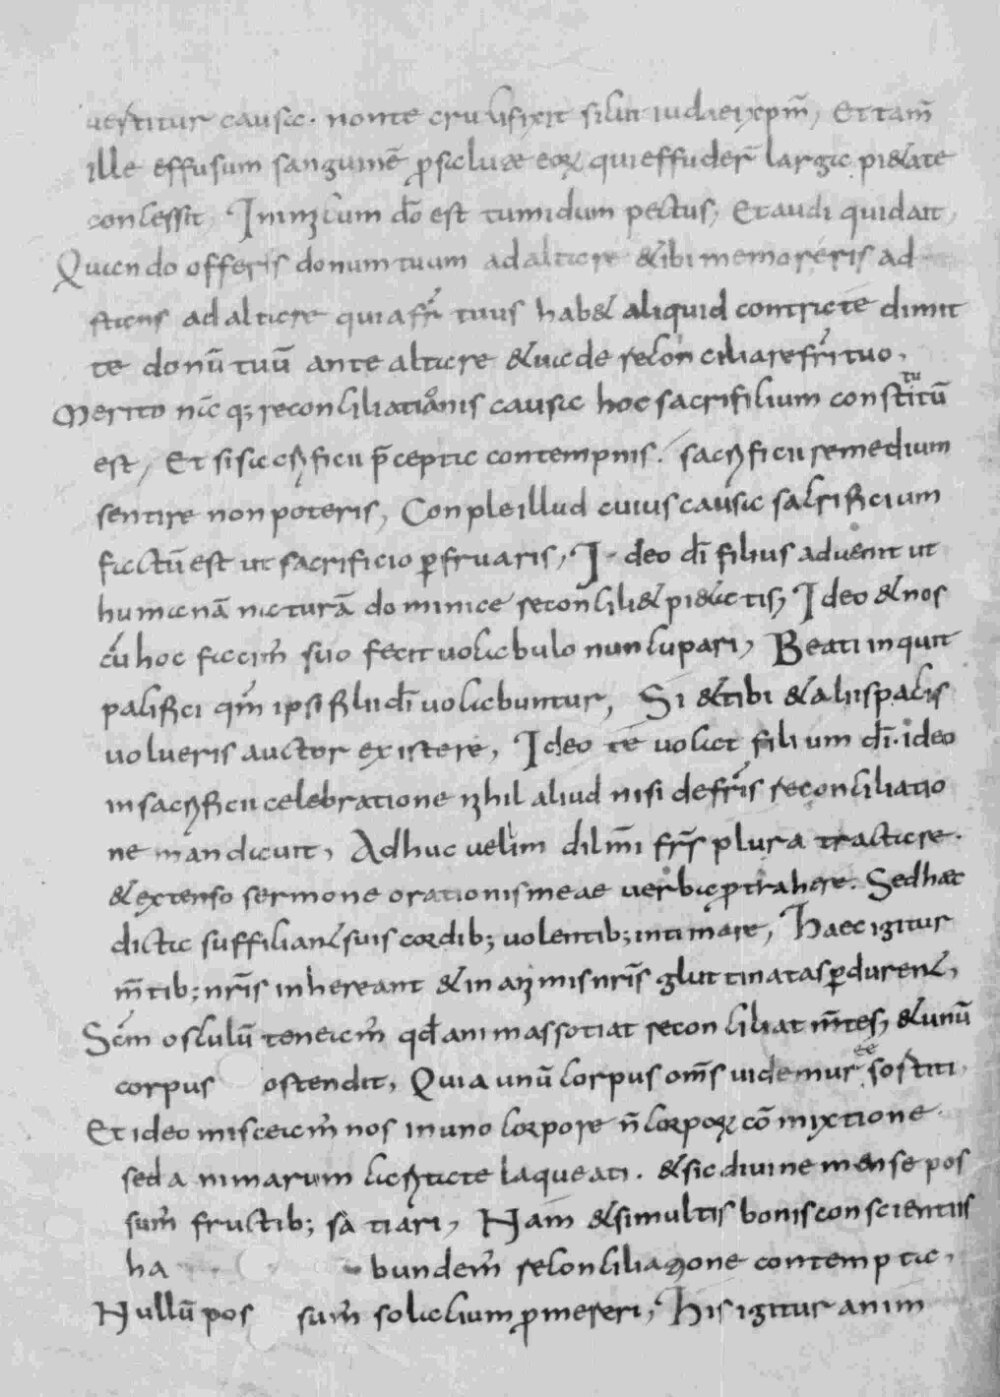 uertitur causa. non te crucifixit sicut iudaei xpm̄, Et tam̄
ille effusum sanguinē ꝓ salute eoꝝ qui effuder̄ larga pietate
concessit, Inimicum dō est tumidum pectus, Et audi quid ait,
Quando offeris donum tuum ad altare & ibi memoreris ad
stans ad altare quia fr̄ tuus hab& aliquid contra te dimit
te donū tuū ante altare & uade reconciliare fr̄i tuo.
Merito nāq; reconciliationis causa hoc sacrificium constitutū
est, Et si sacrificii p̄cepta contempnis. sacrificii remedium
sentire non poteris, Conple illud cuius causa sacrificium
factū est ut sacrificio ꝑfruaris, Ideo dī filius aduenit ut
humanā naturā dominice reconcili& pietatis, Ideo & nos
cū hoc faciem̄ suo fecit uocabulo nuncupari, Beati inquit
pacifici qm̄ ipsi filii dī uocabuntur, Si & tibi & aliis pacis
uolueris auctor existere, Ideo te uocat filium dī. ideo
in sacrificii celebratione nihil aliud nisi de fr̄is reconciliatio
ne mandauit, Adhuc uelim dilm̄i frr̄s plura tractare.
& extenso sermone orationis meae uerba ꝓtrahere. Sed haec
dicta sufficiant suis cordib; uolentib; intimare, Haec igitur
m̄tib; nr̄is inhereant & in animis nr̄is gluttinata ꝑdurent,
Scm̄ osculū teneam̄ qđ animas sotiat reconciliat m̄tes, & unū
corpus ostendit, Quia unū corpus om̄s uidemur ee sortiti,
Et ideo misceam̄ nos in uno corpore n̄ corpoꝝ cōmixtione.
sed animarum caritate laqueati. & sic diuine mense pos
sum̄ fructib; satiari, Nam & si multis bonis conscientiis
ha bundem̄ reconciliatione contempta,
Nullū pos sum̄ solacium ꝓmereri, His igitur anim